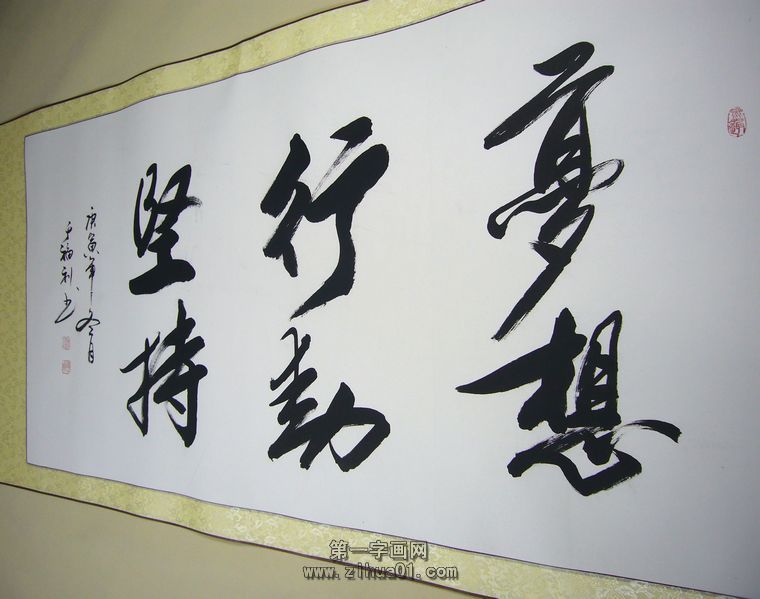 夢想
行動
坚持
庚寅年冬月
福利书
第一字画网
www.zihua01.com